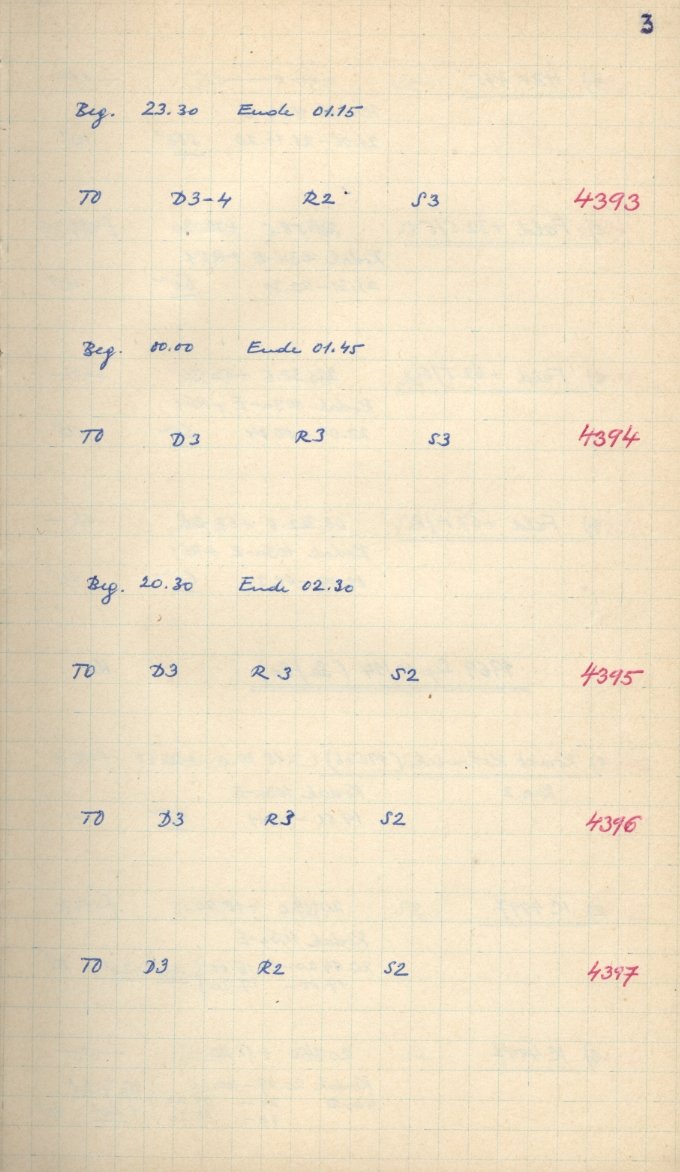 3
Beg. 23.30 Ende 01.15
TO D3-4 R2 S3 4393
Beg. 00.00 Ende 01.45
TO D3 R3 S3 4394
Beg. 20.30 Ende 02.30
TO D3 R3 S2 4395
TO D3 R3 S2 4396
TO D3 R2 S2 4397